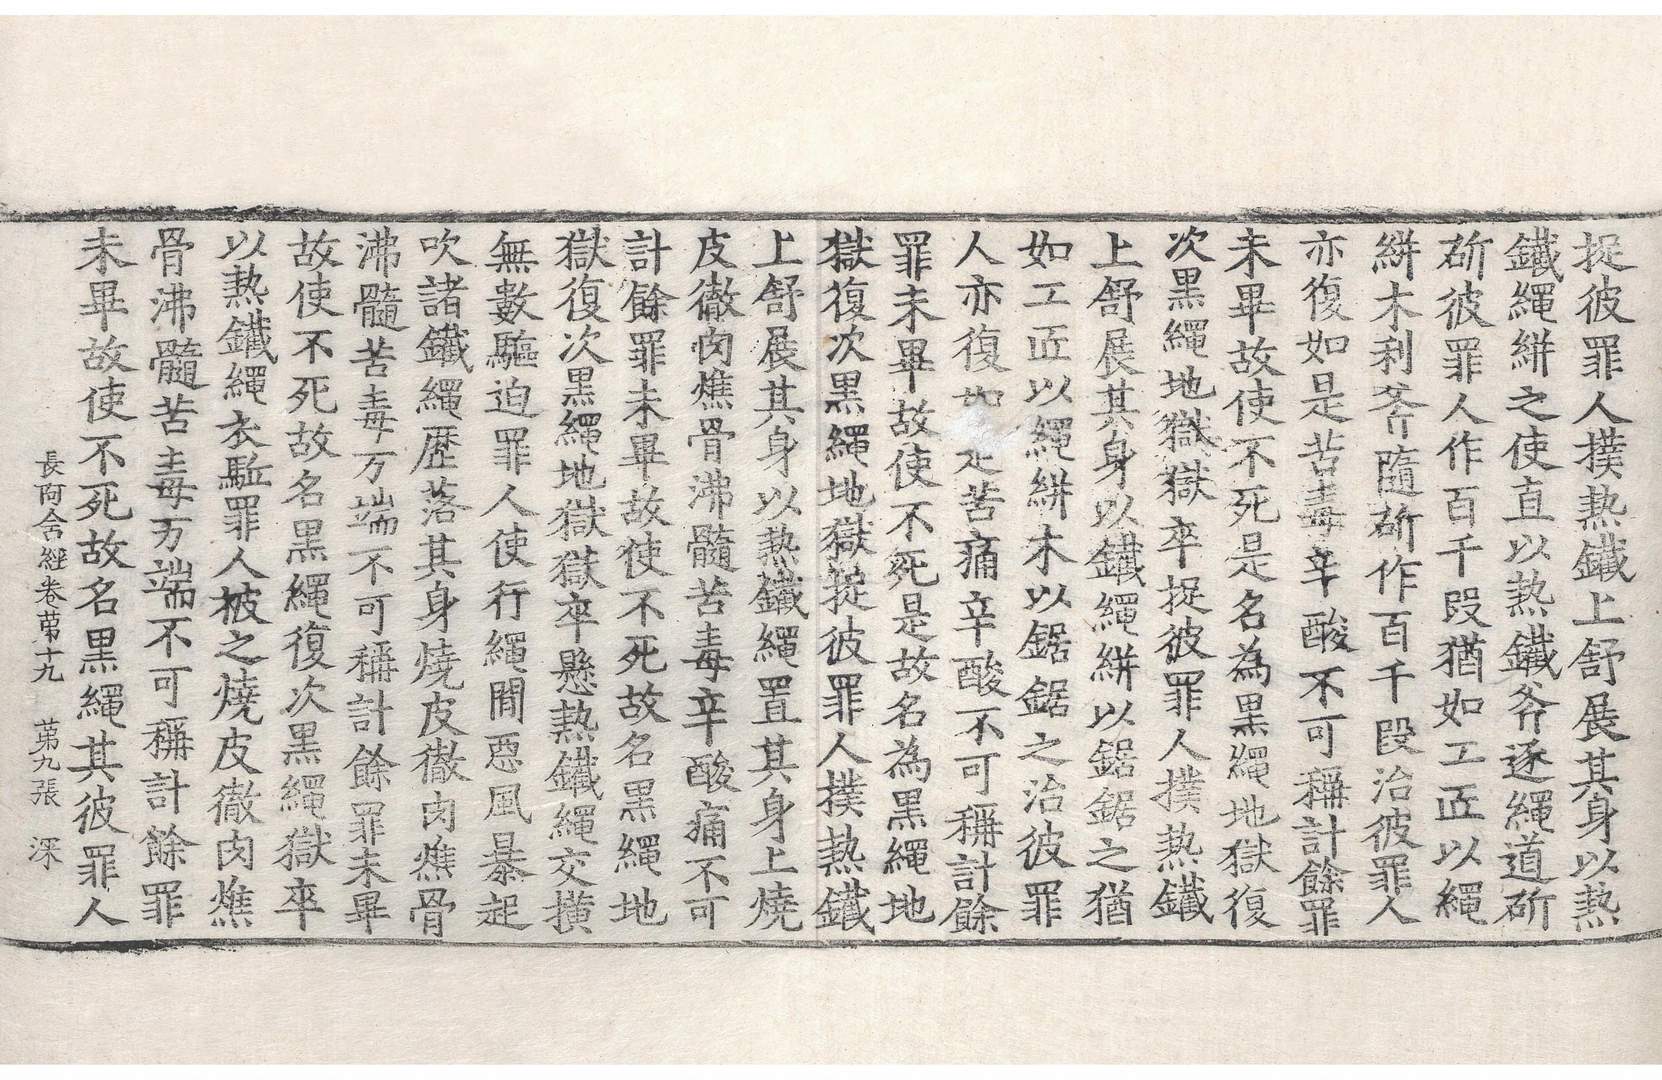 捉彼罪人撲熱鐵上舒展其身以熱
鐵繩絣之使直以熱鐵斧逐繩道斫
斫彼罪人作百千段猶如工匠以繩
絣木利斧隨斫作百千段治彼罪人
亦復如是苦毒辛酸不可稱計餘罪
未畢故使不死是名為黒繩地獄復
次黒繩地獄獄卒捉彼罪人撲熱鐵
上舒展其身以鐵繩絣以鋸鋸之猶
如工匠以繩絣木以鋸鋸之治彼罪
人亦復如是苦痛辛酸不可稱計餘
罪未畢故使不死是故名為黒繩地
獄復次黒繩地獄捉彼罪人撲熱鐵
上舒展其身以熱鐵繩置其身上燒
皮徹肉燋骨沸髓苦毒辛酸痛不可
計餘罪未畢故使不死故名黒繩地
獄復次黒繩地獄獄卒懸熱鐵繩交橫
無數驅迫罪人使行繩間惡風暴起
吹諸鐵繩歷落其身燒皮徹肉燋骨
沸髓苦毒万端不可稱計餘罪未畢
故使不死故名黒繩復次黒繩獄卒
以熱鐵繩衣駈罪人被之燒皮徹肉燋
骨沸髓苦毒万端不可稱計餘罪
未畢故使不死故名黒繩其彼罪人
長阿含經卷苐十九 苐九張 深